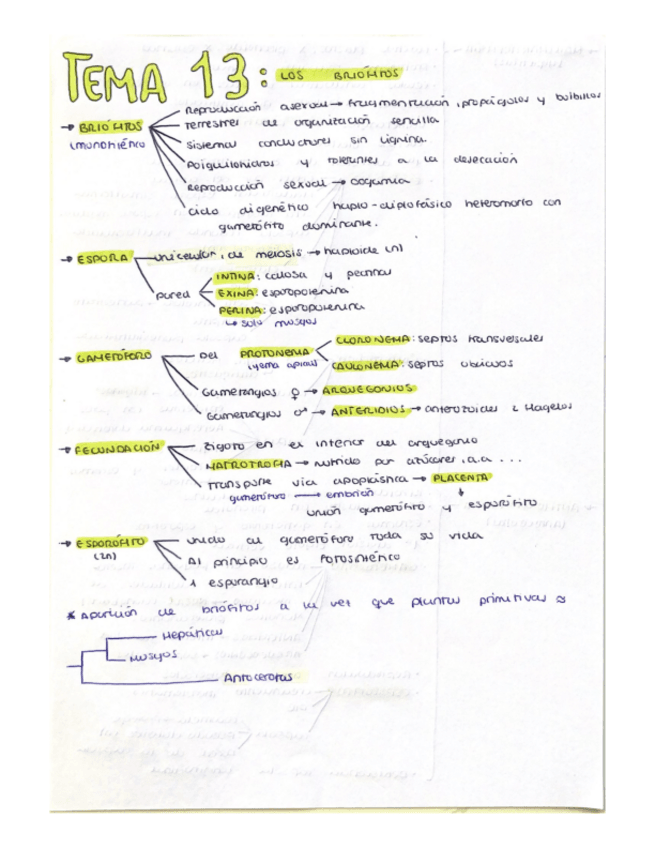 TEMA 13: LOS BRIÓFITOS
→ BRIÓFITOS
(monofilético
Reproducción asexual → fragmentación, propágulos y bulbillos
Terrestres de organización sencilla
Sistemas conductores sin lignina.
Poiquilohidros y tolerantes a la desecación
Reproducción sexual → oogamia
Ciclo digenético haplo-diplofásico heteromorfo con
gametófito dominante.
→ ESPORA
unicelular, de meiosis → haploide (n)
pared
INTINA: calosa y pectinas
EXINA: esporopolenina
PERINA: esporopolenina
↳ solo musgos
→ GAMETÓFORO
Del PROTONEMA
(yema apical)
CLORONEMA: septos transversales
CAULONEMA: septos oblicuos
Gametangios ♀ → ARQUEGONIOS
Gametangios ♂ → ANTERIDIOS → anterozoides 2 flagelos
→ FECUNDACIÓN
Zigoto en el interior del arquegonio
MATROTROFIA → nutrido por azúcares, a.a ...
Transporte vía apoplástica → PLACENTA
gametófito → embrión
unión gametófito y esporófito
→ ESPORÓFITO
(2n)
unido al gametóforo toda su vida
Al principio es fotosintético
1 esporangio
* Aparición de briófitos a la vez que plantas primitivas
Hepáticas
Musgos
Antocerotas